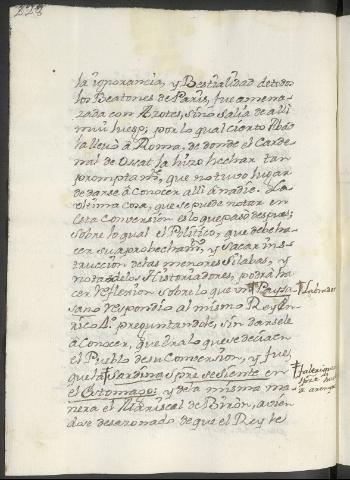 228
la ignorancia, y Bestialidad de todos
los Beatones de Paris, fue amena-
zada con Azotes, sino salia de alli
mui luego; por lo qual cierto Abad
la llevò à Roma, de donde el Carde-
nal de Ossat la hizo hechar tan
promptamte, que no tuvo lugar
de darse à Conocer alli à nadie. La
ultima cosa, que se puede notar en
esta Conversion es lo que pasò despues;
sobre lo qual el Politico, que debe ha-
cer su aprobechamto, y sacar ins-
truccion de las menores silabas, y
notas de los Historiadores, podrà ha-
cer reflexion sobre lo que un † Paysa-
sano respondiò al mismo Rey En-
rico 4o. preguntandole, sin darsele
à conocer, que era lo que se decia en
el Pueblo de su Conversion, y fue,
que la † Sardina spre se siente en
el Estomago; y de la misma ma-
nera el Mariscal de Biròn, avien-
dose desazonado de que el Rey le
† Labrador
† la
spre
à arenque